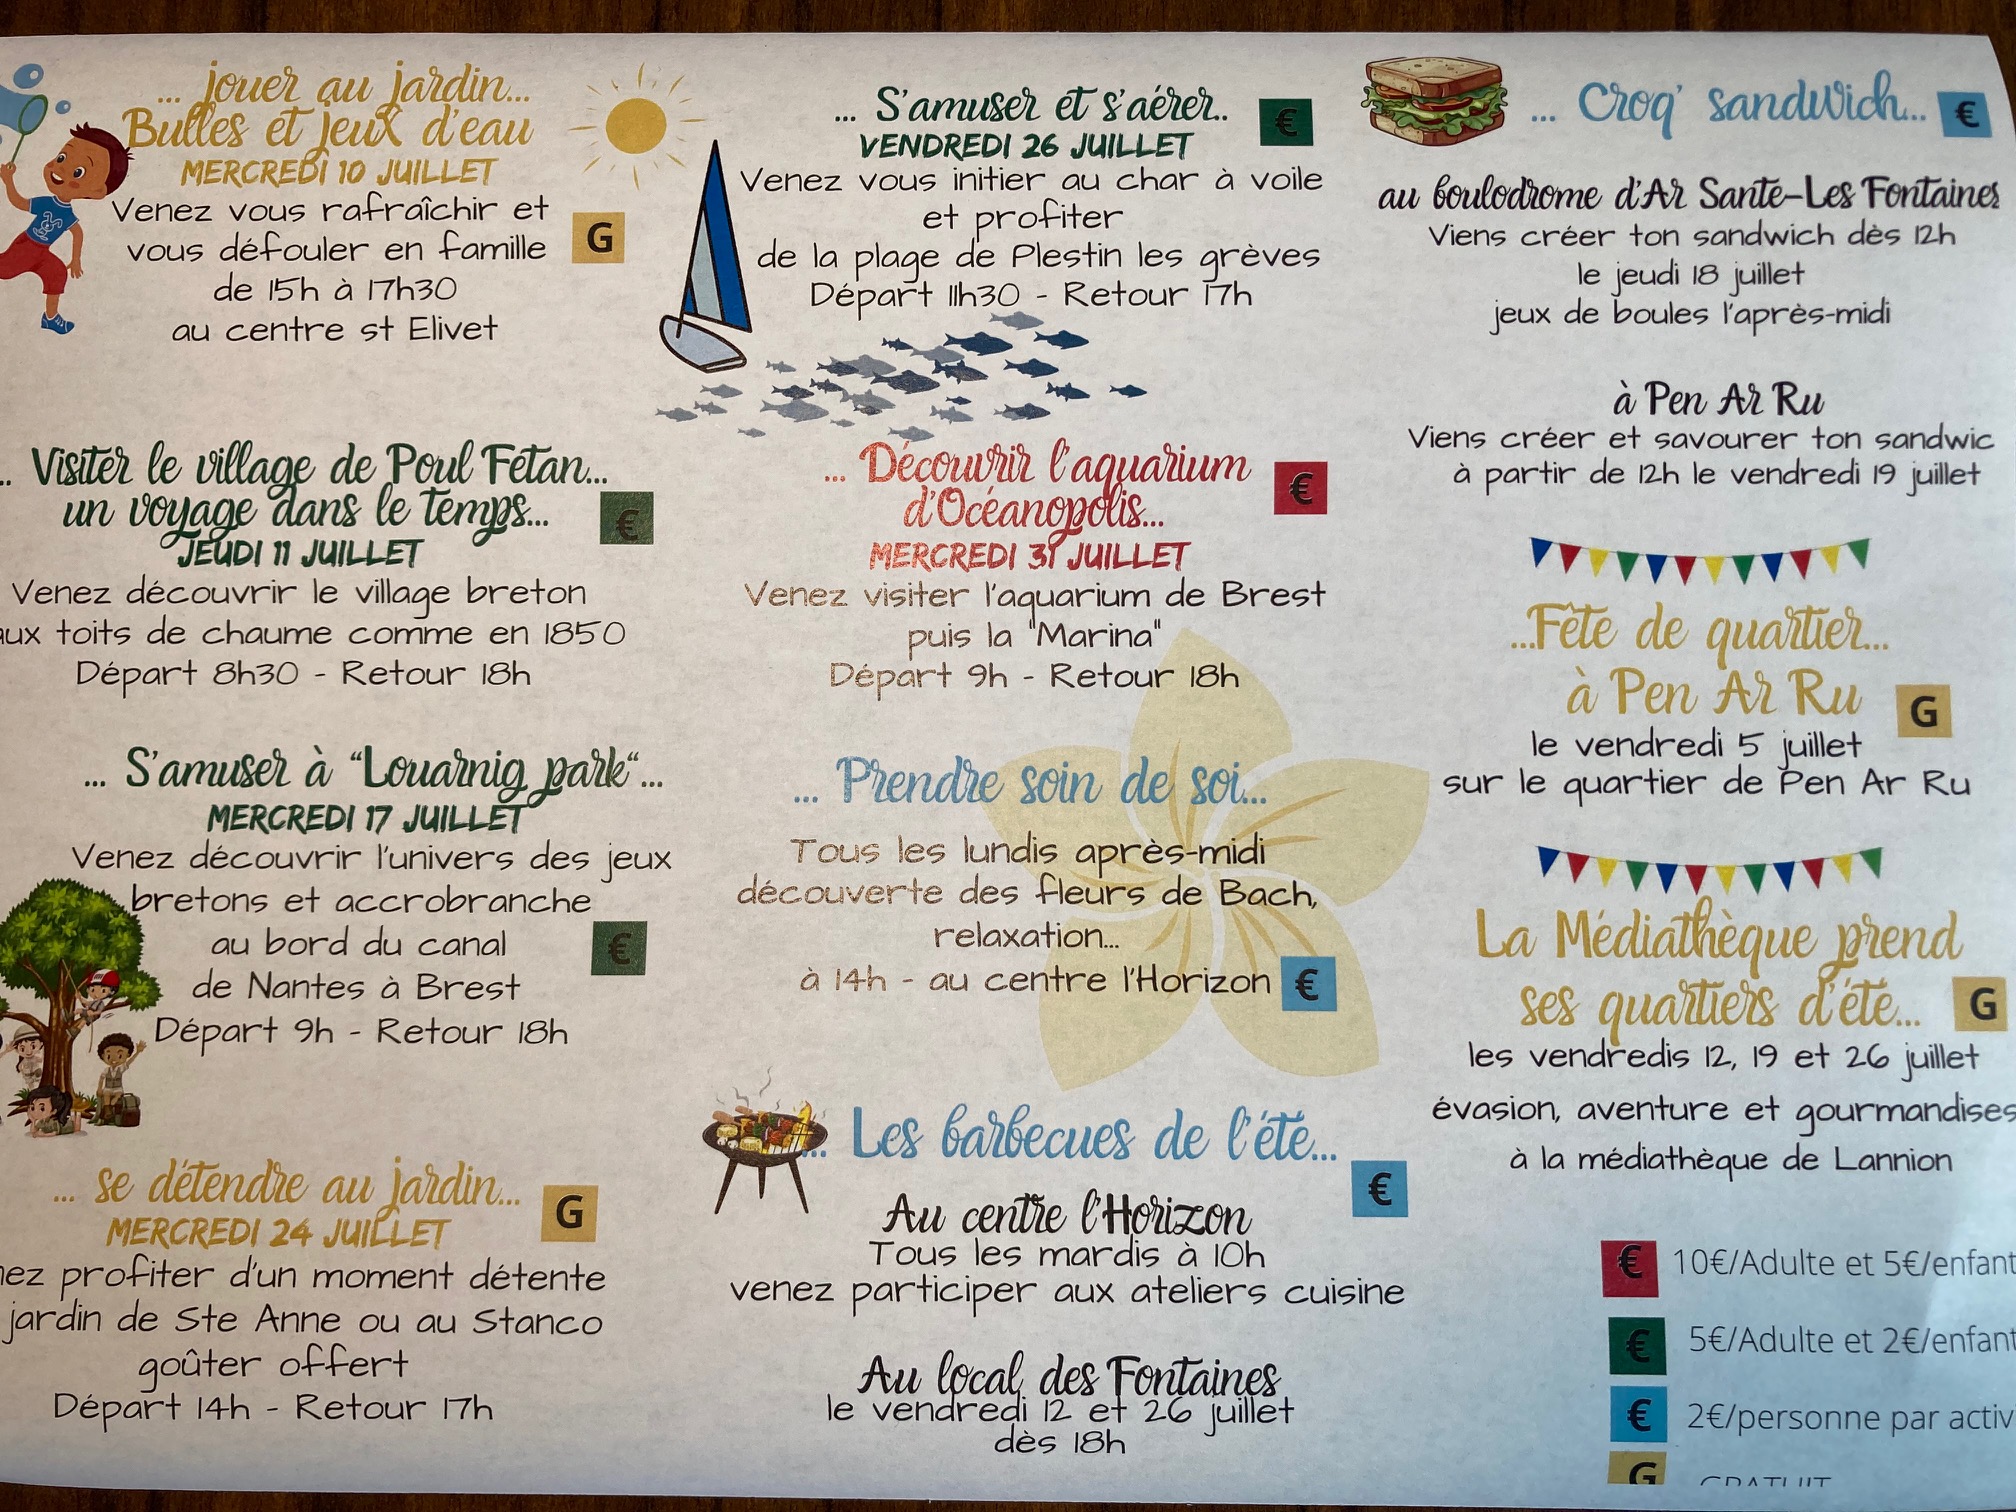 ... jouer au jardin...
Bulles et jeux d'eau
MERCREDI 10 JUILLET
Venez vous rafraîchir et
vous défouler en famille
G
de 15h à 17h30
au centre st Elivet
... Visiter le village de Poul Fetan...
un voyage dans le temps...
€
JEUDI 11 JUILLET
Venez découvrir le village breton
aux toits de chaume comme en 1850
Départ 8h30 - Retour 18h
... S'amuser à "Louarnig park"...
MERCREDI 17 JUILLET
Venez découvrir l'univers des jeux
bretons et accrobranche
au bord du canal
€
de Nantes à Brest
Départ 9h - Retour 18h
... se détendre au jardin...
G
MERCREDI 24 JUILLET
nez profiter d'un moment détente
jardin de Ste Anne ou au Stanco
goûter offert
Départ 14h - Retour 17h
... S'amuser et s'aérer..
€
VENDREDI 26 JUILLET
Venez vous initier au char à voile
et profiter
de la plage de Plestin les grèves
Départ 11h30 - Retour 17h
... Découvrir l'aquarium
€
d'Océanopolis...
MERCREDI 31 JUILLET
Venez visiter l'aquarium de Brest
puis la "Marina"
Départ 9h - Retour 18h
... Prendre soin de soi...
Tous les lundis après-midi
découverte des fleurs de Bach,
relaxation...
à 14h - au centre l'Horizon
€
... Les barbecues de l'été...
€
Au centre l'Horizon
Tous les mardis à 10h
venez participer aux ateliers cuisine
Au local des Fontaines
le vendredi 12 et 26 juillet
dès 18h
... Croq' sandwich...
€
au boulodrome d'Ar Santé-Les Fontaines
Viens créer ton sandwich dès 12h
le jeudi 18 juillet
jeux de boules l'après-midi
à Pen Ar Ru
Viens créer et savourer ton sandwic
à partir de 12h le vendredi 19 juillet
...Fête de quartier...
à Pen Ar Ru
G
le vendredi 5 juillet
sur le quartier de Pen Ar Ru
La Médiathèque prend
ses quartiers d'été...
G
les vendredis 12, 19 et 26 juillet
évasion, aventure et gourmandises
à la médiathèque de Lannion
€ 10€/Adulte et 5€/enfant
€ 5€/Adulte et 2€/enfant
€ 2€/personne par activ
G GRATUIT